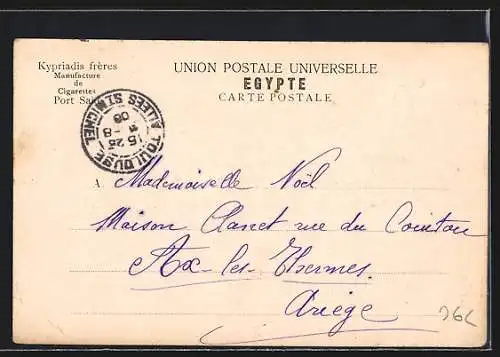 Kypriadis frères
Manufacture
de
Cigarettes
Port Said
UNION POSTALE UNIVERSELLE
EGYPTE
CARTE POSTALE
TOULOUSE
ALLÉES ST MICHEL
15 25
8
06
A Mademoiselle Noël
Maison Clanet rue du Cointou
Ax-les-Thermes
Ariège